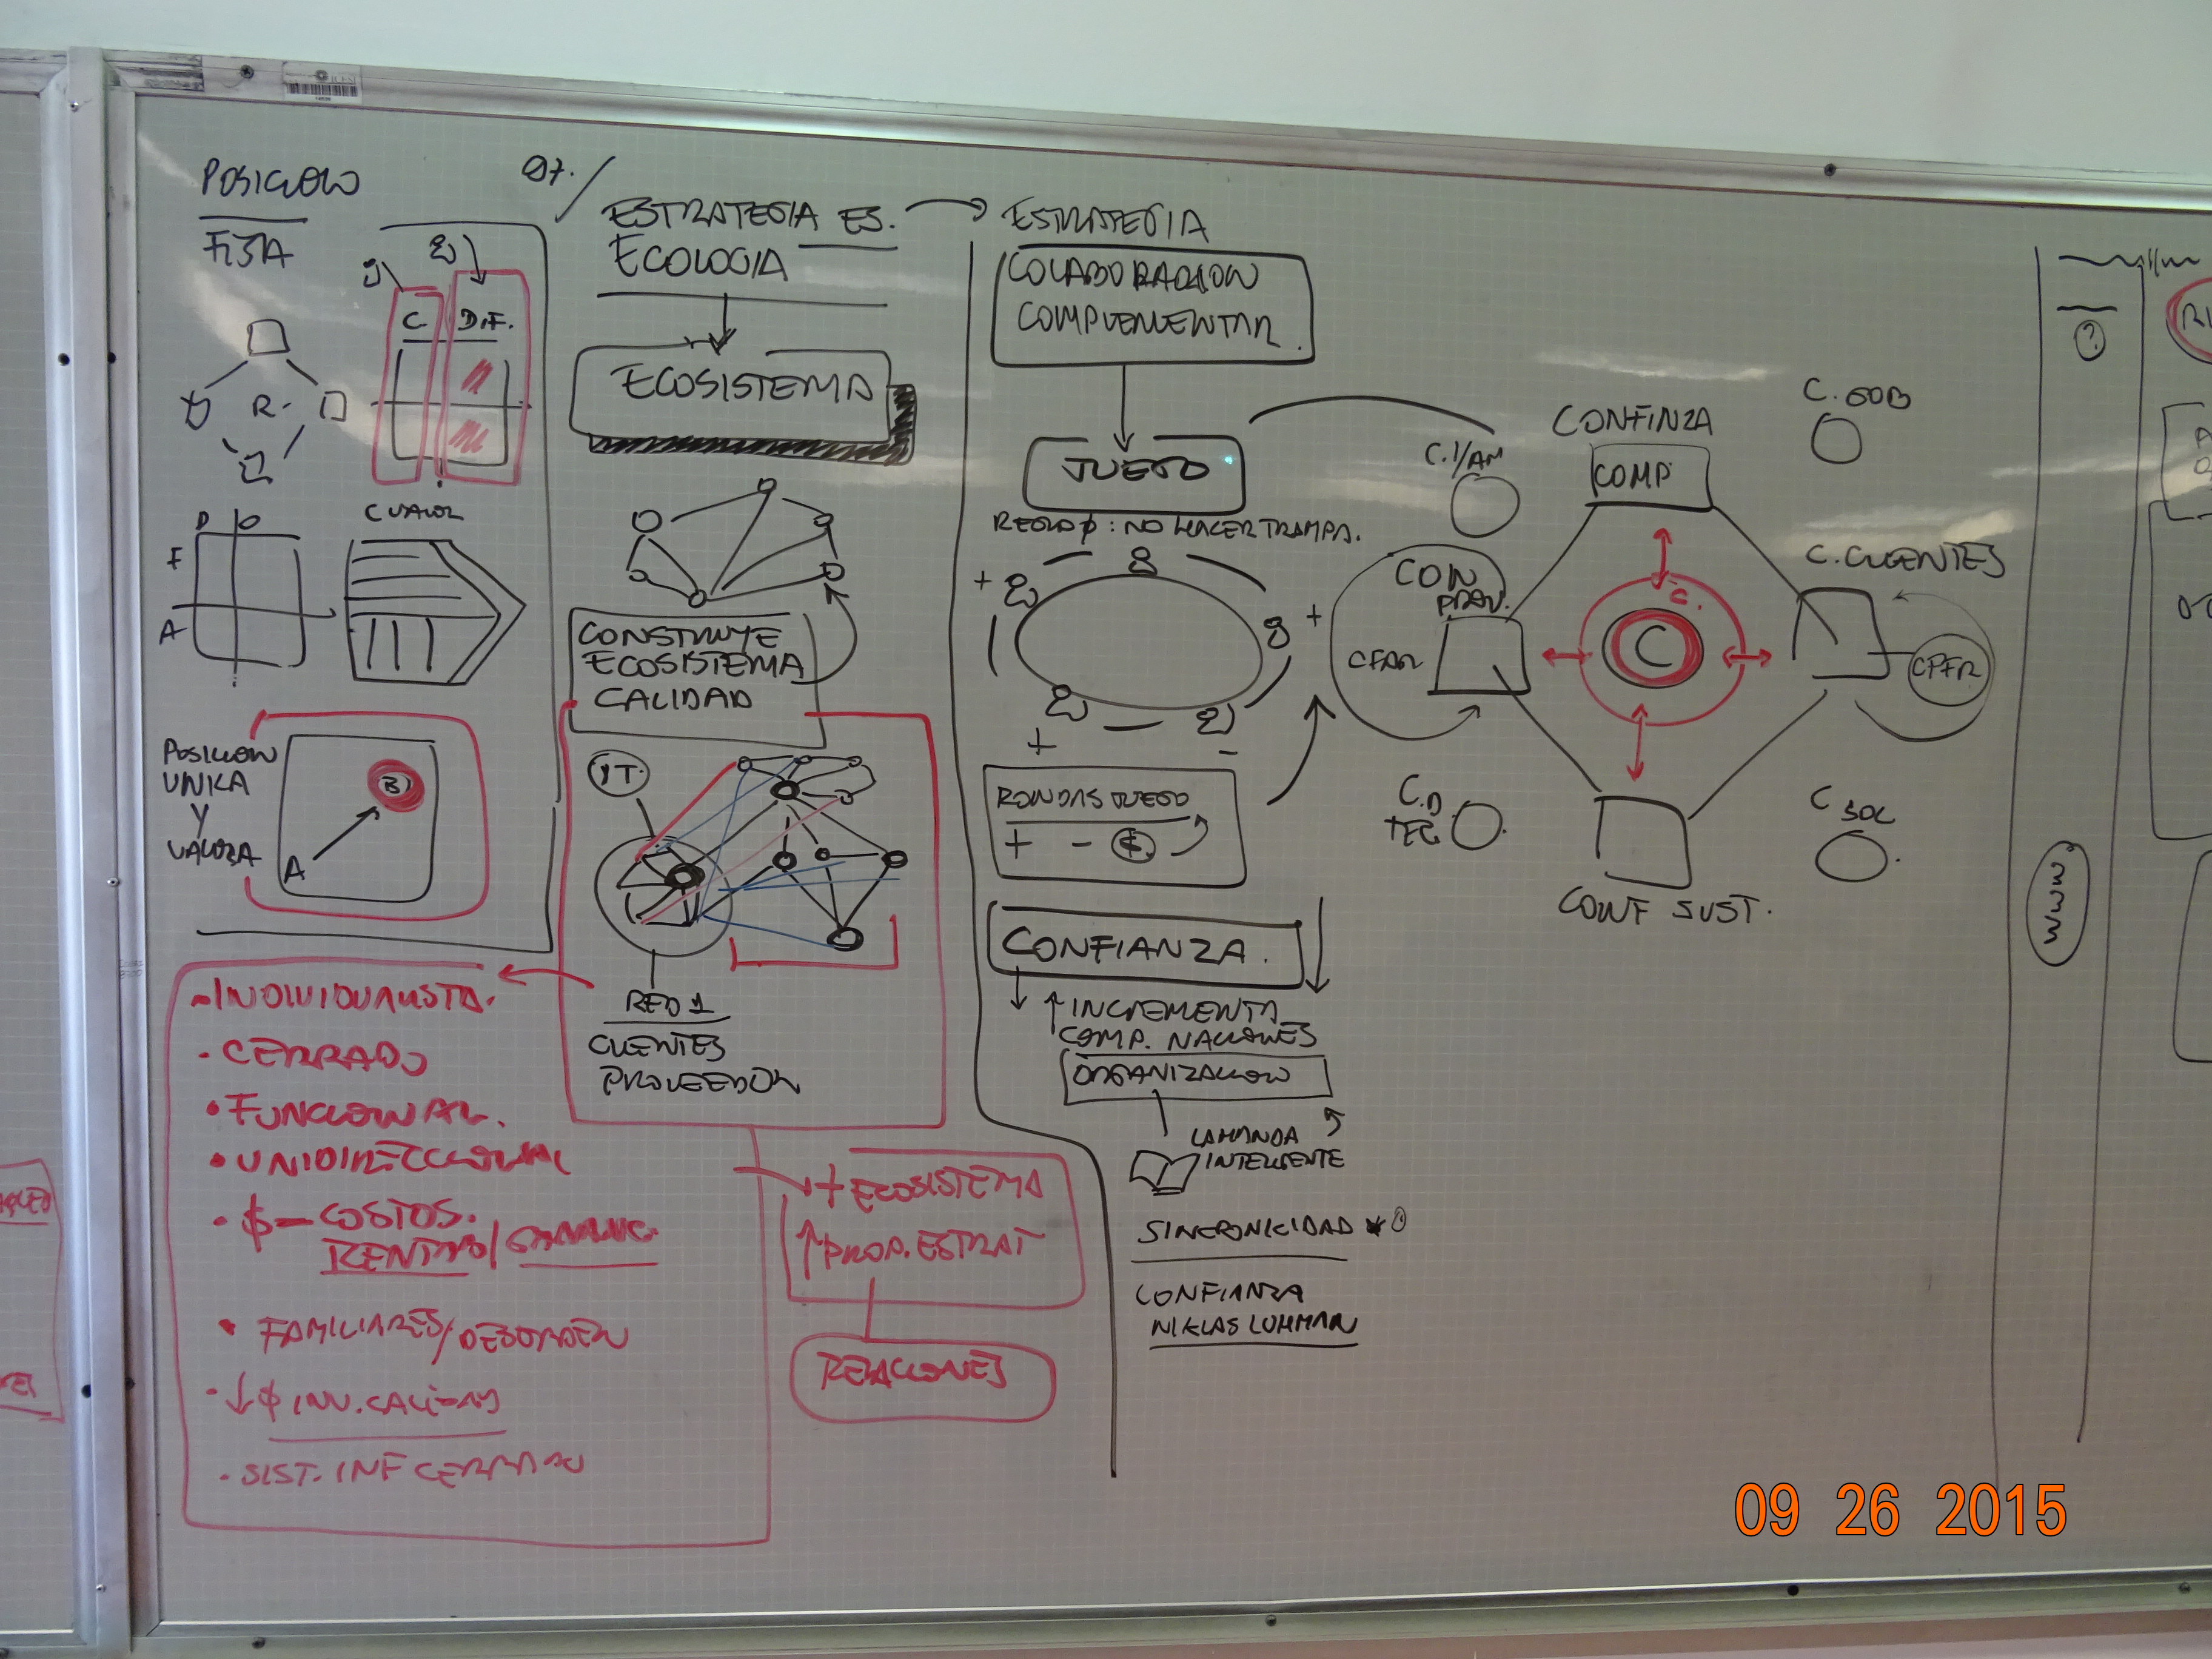 POSICION
FIJA
07.
C. DIF.
R.
D O
F
A
C VALOR
POSICION
UNICA
Y
VALORA
B
A
- INDIVIDUALISTA.
• CERRADO
• FUNCIONAL.
• UNIDIRECCIONAL
• $ - COSTOS.
• FAMILIARES/DESORDEN
• ↓ $ INV. CALIDAD
• SIST. INF CERRADO
ESTRATEGIA ES.
ECOLOGIA
ECOSISTEMA
CONSTRUYE
ECOSISTEMA
CALIDAD
RED 1
CLIENTES
PROVEEDOR
+ ECOSISTEMA
↑ PROP. ESTRAT
RELACIONES
ESTRATEGIA
COLABORACION
COMPLEMENTAR.
JUEGO
REGLA Ø: NO HACER TRAMPA.
+
+
+
-
RONDAS JUEGO
+ - $
CONFIANZA.
↓ ↑ INCREMENTA
COMP. NACIONES
ORGANIZACION
LAMANDA
INTELIGENTE
SINCRONICIDAD
CONFIANZA
NIKLAS LUHMAN
CONFINZA
COMP
C. GOB
C. CLIENTES
CPFR
CON
PROV.
C.
C
C. D
TEC
C SOC
CONF SUST.
?
WWW.
09 26 2015